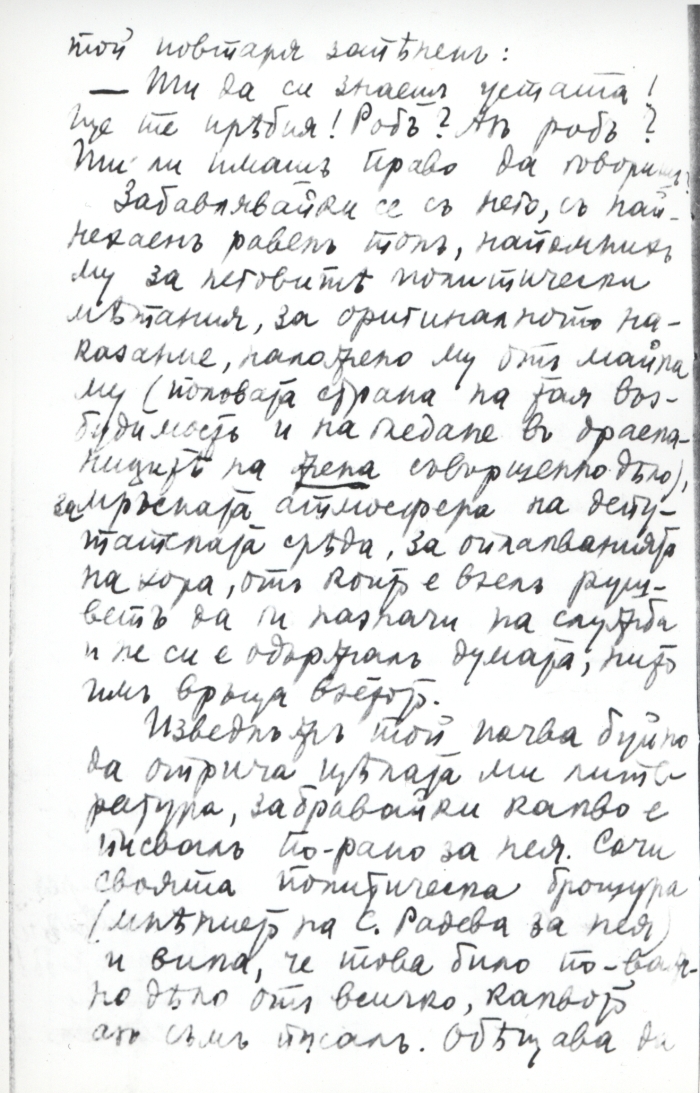 той повтаря запѣненъ:
— Ти да си знаешъ устата!
Ще те прѣбия! Робъ? Азъ робъ?
Ти ли имашъ право да говоришъ?
Забавлявайки се съ него, съ най-
нехаенъ равенъ тонъ, напомнихъ
му за неговитѣ политически
мѣтания, за оригиналното на-
казание, наложено му отъ майка
му (половата страна на тая въз-
будимость и на гледане въ
на жена совършенно дѣло),
за мръсната атмосфера на депу-
татската срѣда, за оплакванията
на хора, отъ които е взелъ руш-
ветъ да ги назначи на служба
и не си е одържалъ думата, нито
имъ връща взетото.
Изведнъжъ той почва буйно
да отрича цѣлата ми лите-
ратура, забравяйки какво е
писвалъ по-рано за нея. Сочи
своята политическа брошура
(мнѣнието на С. Радева за нея)
и вика, че това било по-важ-
но дѣло отъ всичко, каквото
азъ съмъ писалъ. Обѣщава да